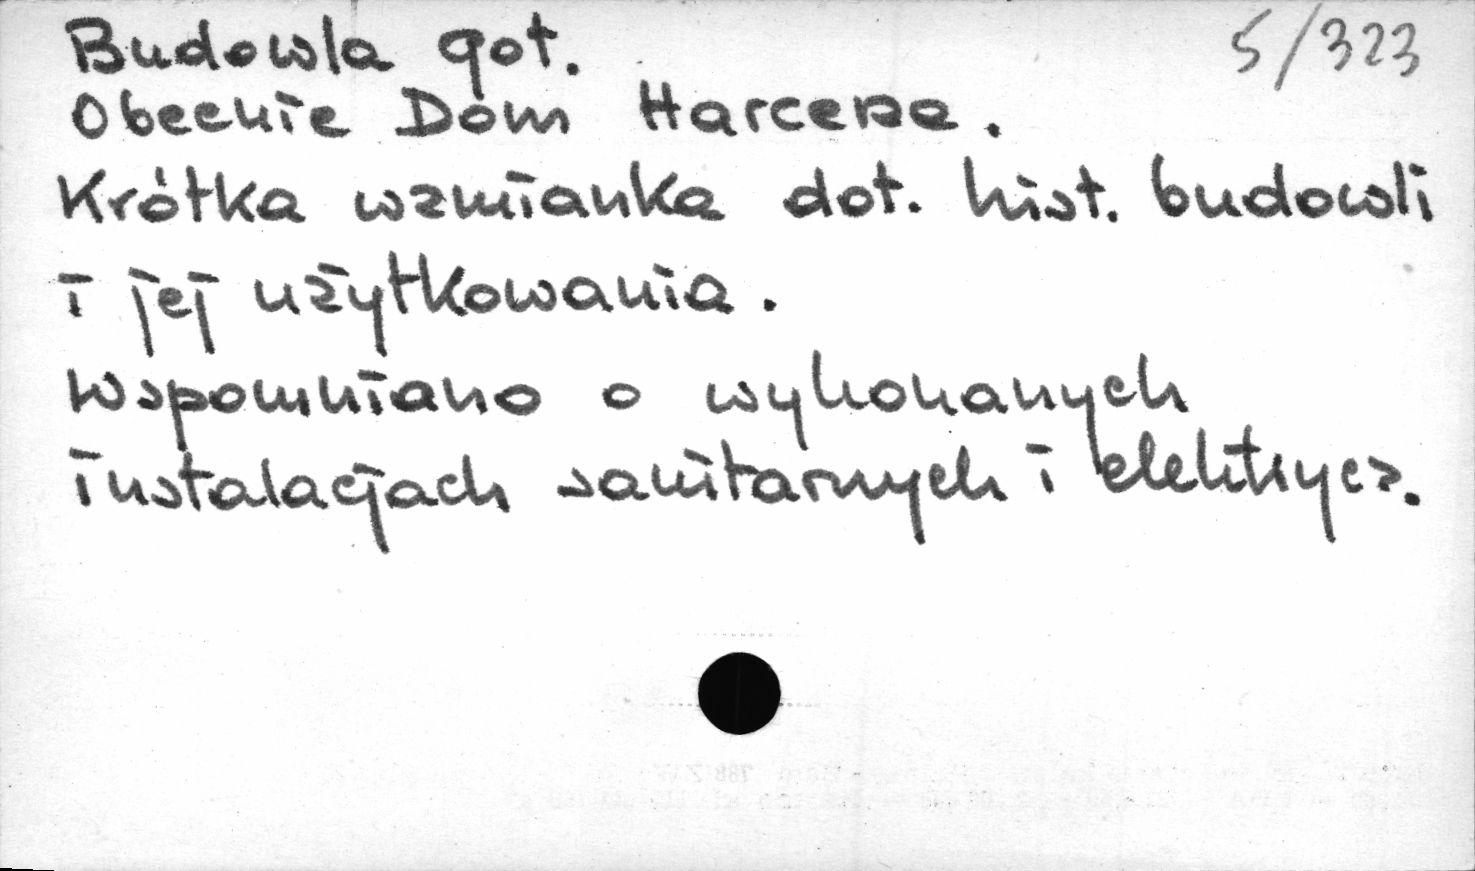 Budowla got. 5/323
Obecnie Dom Harcerza.
Krótka wzmianka dot. hist. budowli
i jej użytkowania.
Wspomniano o wykonanych
instalacjach sanitarnych i elektrycz.